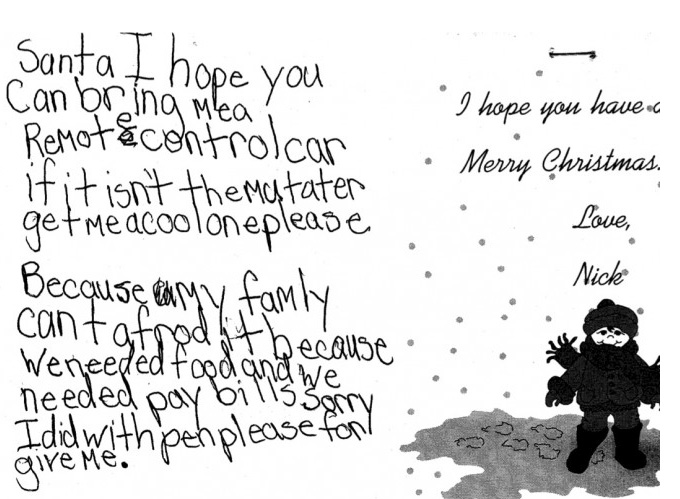 Santa I hope you
Can bring Me a
ReMote control car
if it isn't the Matater
get me a cool one please
Because my famly
can t afrod it because
We needed food and we
needed pay bills sorry
I did with pen please for
give Me.
I hope you have a
Merry Christmas.
Love,
Nick